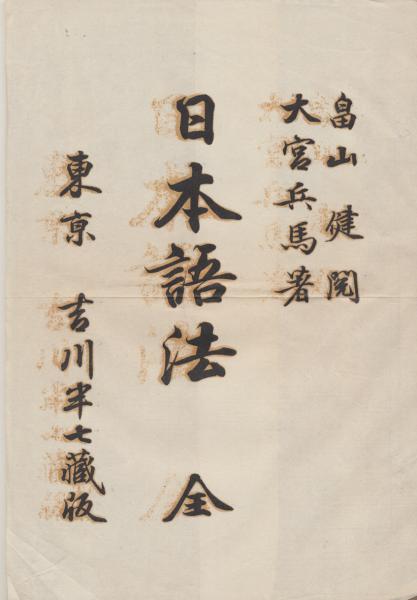 畠山健閲
大宮兵馬著
日本語法 全
東京 吉川半七藏版